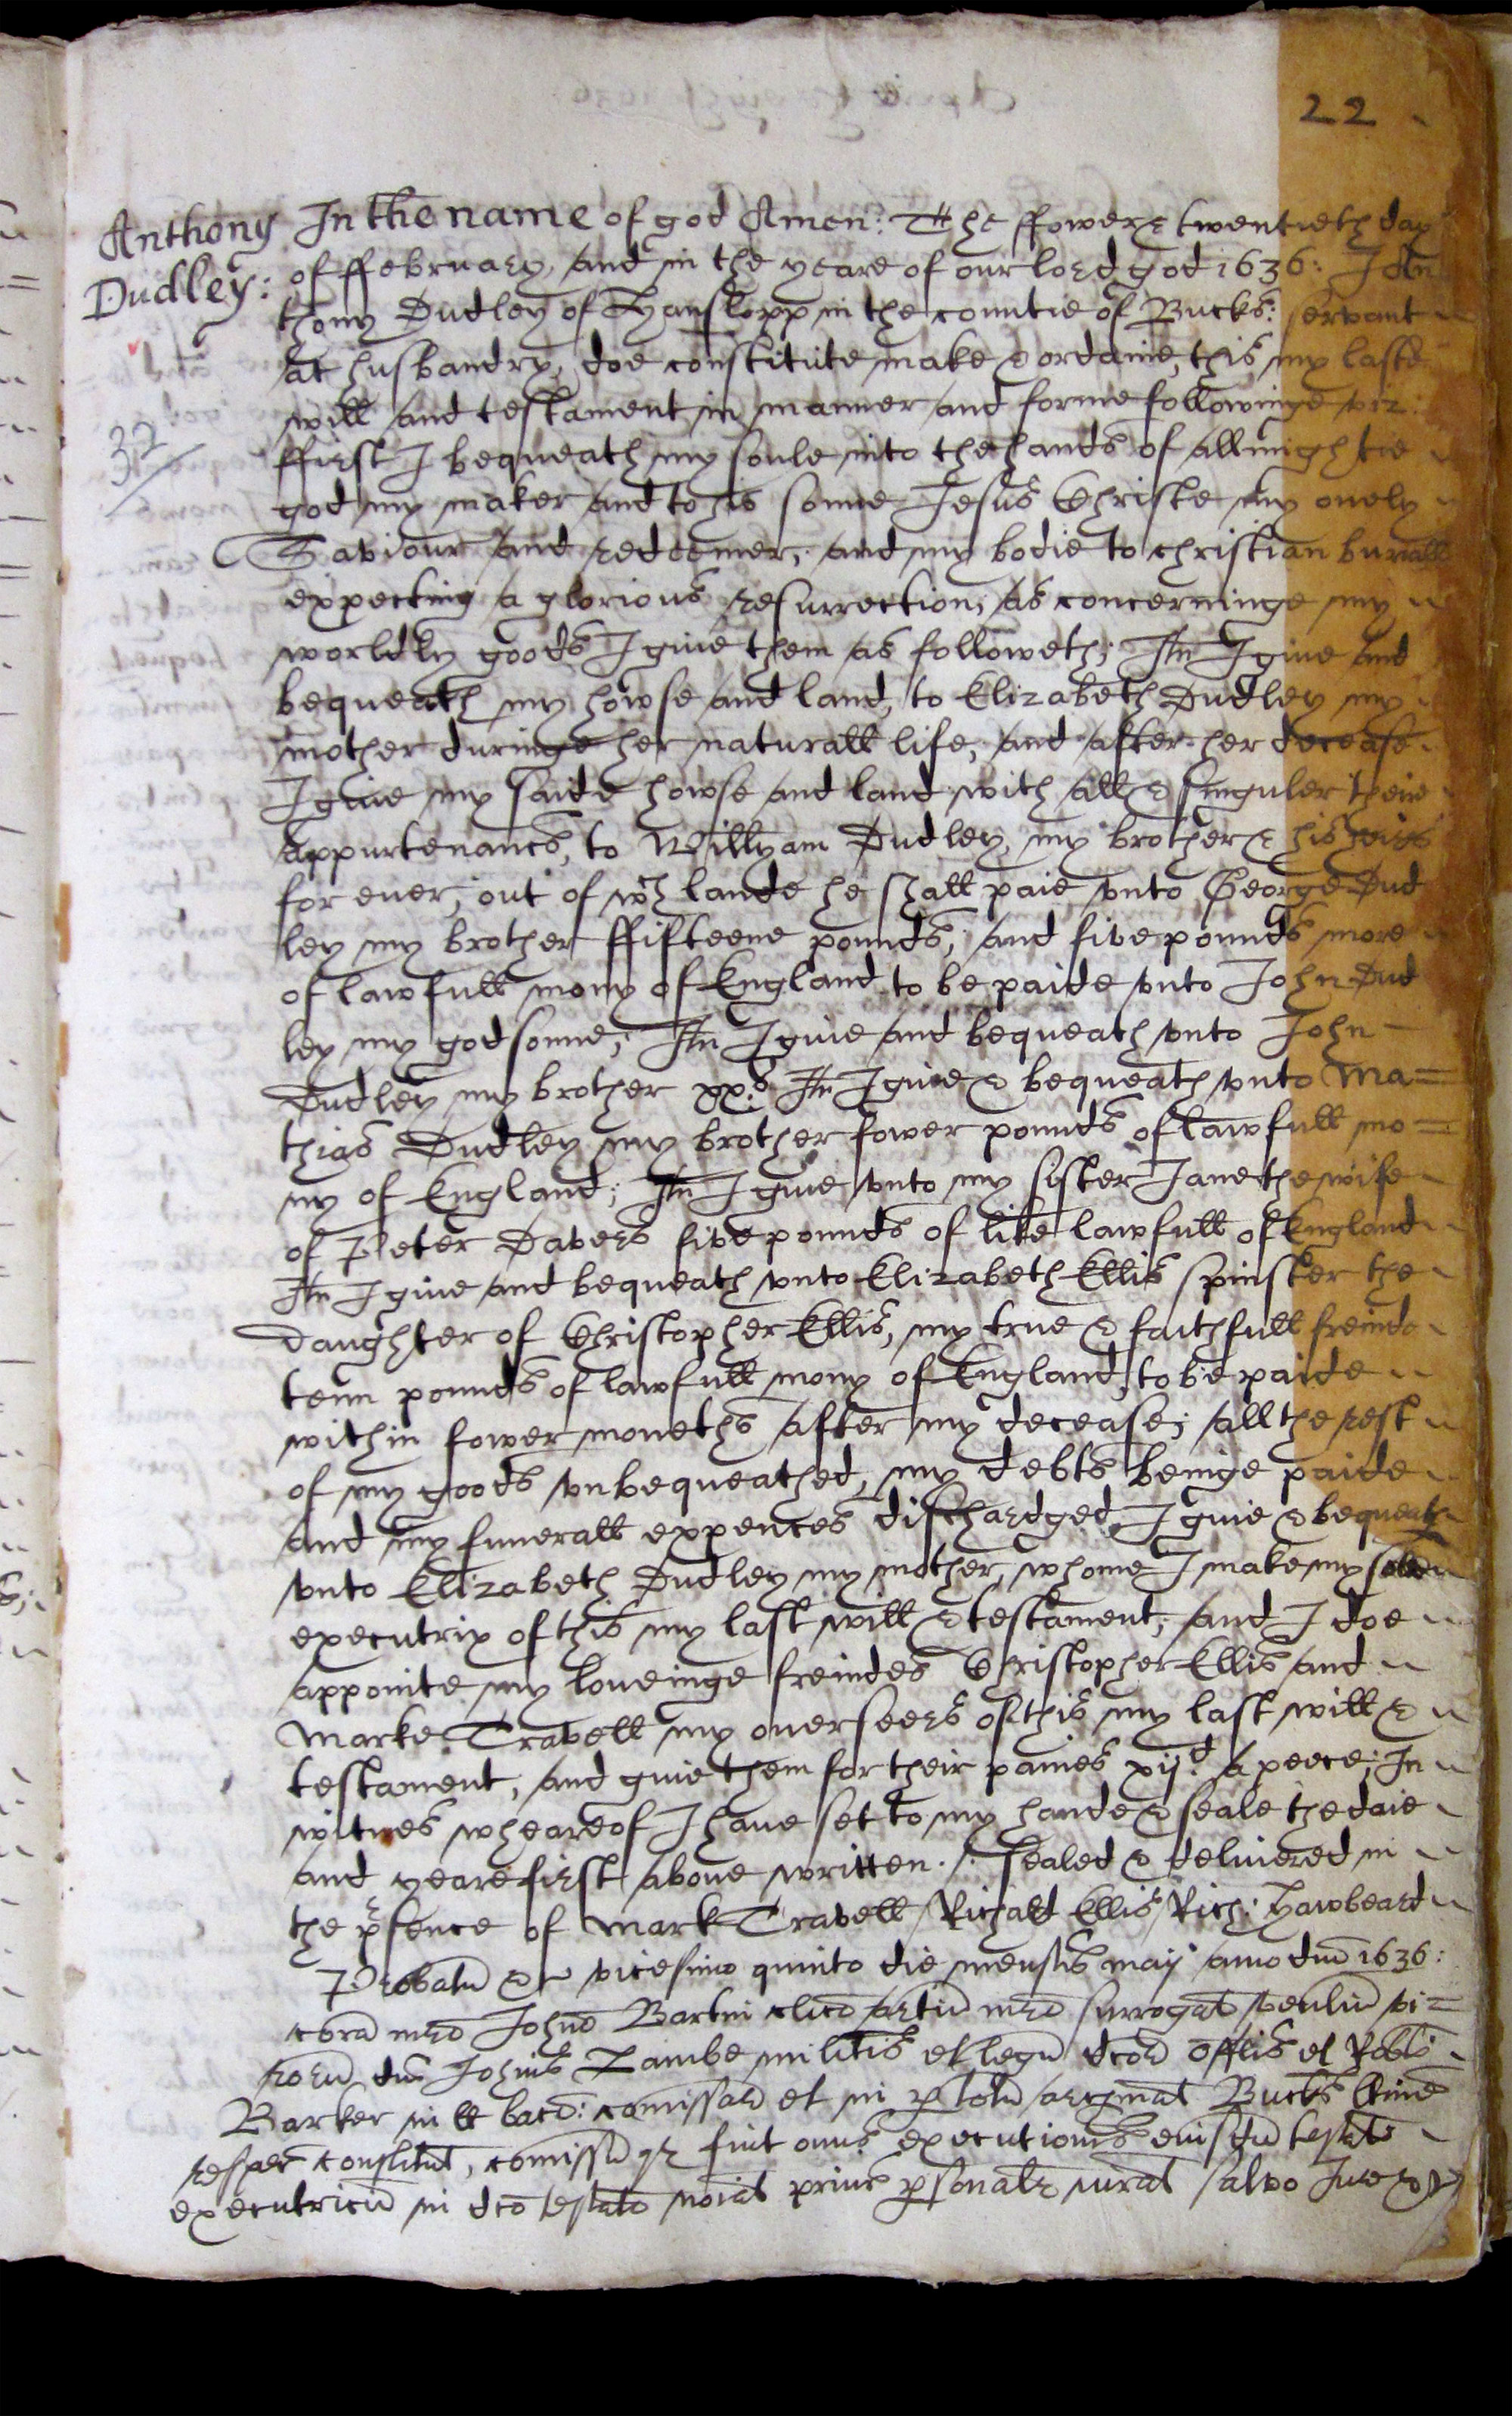 22
Anthony
Dudley:
32
In the name of god Amen: The ffower & twentieth day
of ffebruary, and in the yeare of our lord god 1636: I An
thony Dudley of Hanslopp in the countie of Bucks: servant
at husbandry, doe constitute make & ordaine, this my laste
will and testament in manner and forme followinge viz:
ffirst I bequeath my soule into the hands of allmightie
god my maker and to his sonne Jesus Christe my onely
Saviour and redeemer, and my bodie to christian buriall
expecting a glorious resurrection, as concerninge my
worldly goods I give them as followeth; Itm I give and
bequeath my howse and land, to Elizabeth Dudley my
mother duringe her naturall life, and after her decease
I give my saide howse and land with all & singuler their
appurtenancs, to Willyam Dudley, my brother & his heirs
for ever, out of wch lande he shall paie vnto George Dud
ley my brother ffifteene pounds, and five pounds more
of lawfull mony of England to be paide vnto John Dud
ley my godsonne; Itm I give and bequeath vnto John
Dudley my brother xx:s Itm I give & bequeath vnto Ma=
thias Dudley my brother fower pounds of lawfull mo=
ny of England; Itm I give vnto my sister Jane the wife
of Peter Davers five pounds of like lawfull of England
Itm I give and bequeath vnto Elizabeth Ellis spinster the
daughter of Christopher Ellis, my true & faithfull freinde
tenn pounds of lawfull mony of England, to be paide
within fower moneths after my decease; all the rest
of my goods vnbequeathed, my debts beinge paide
and my funerall expences dischardged, I give & bequeath
vnto Elizabeth Dudley my mother, whome I make my sole
executrix of this my last will & testament; and I doe
appointe my loveinge freindes Christopher Ellis and
Marke Travell my overseers of this my last will &
testament, and give them for their paines xij:d a peece; In
witnes wheareof I have set to my hande & seale the daie
and yeare first above written ./. sealed & delivered in
the prsence of Mark Travell / Richard Ellis / Rich: Hawbeard
Probatu &c vicesimo quinto die mensis maij anno dni 1636:
cora mro Johne Barton clico artiu mro surrogat veneliu vi=
roru dni Johnis Lambe militis et legu dcor offlis et Robti
Barker in ll bacc: comissar et in p totu arcginat Bucks
respec constitut, comissu qr fuit onus executionis euisdu testato
executricu in dco testato noiat prius psonalr iurat salvo Jure &c